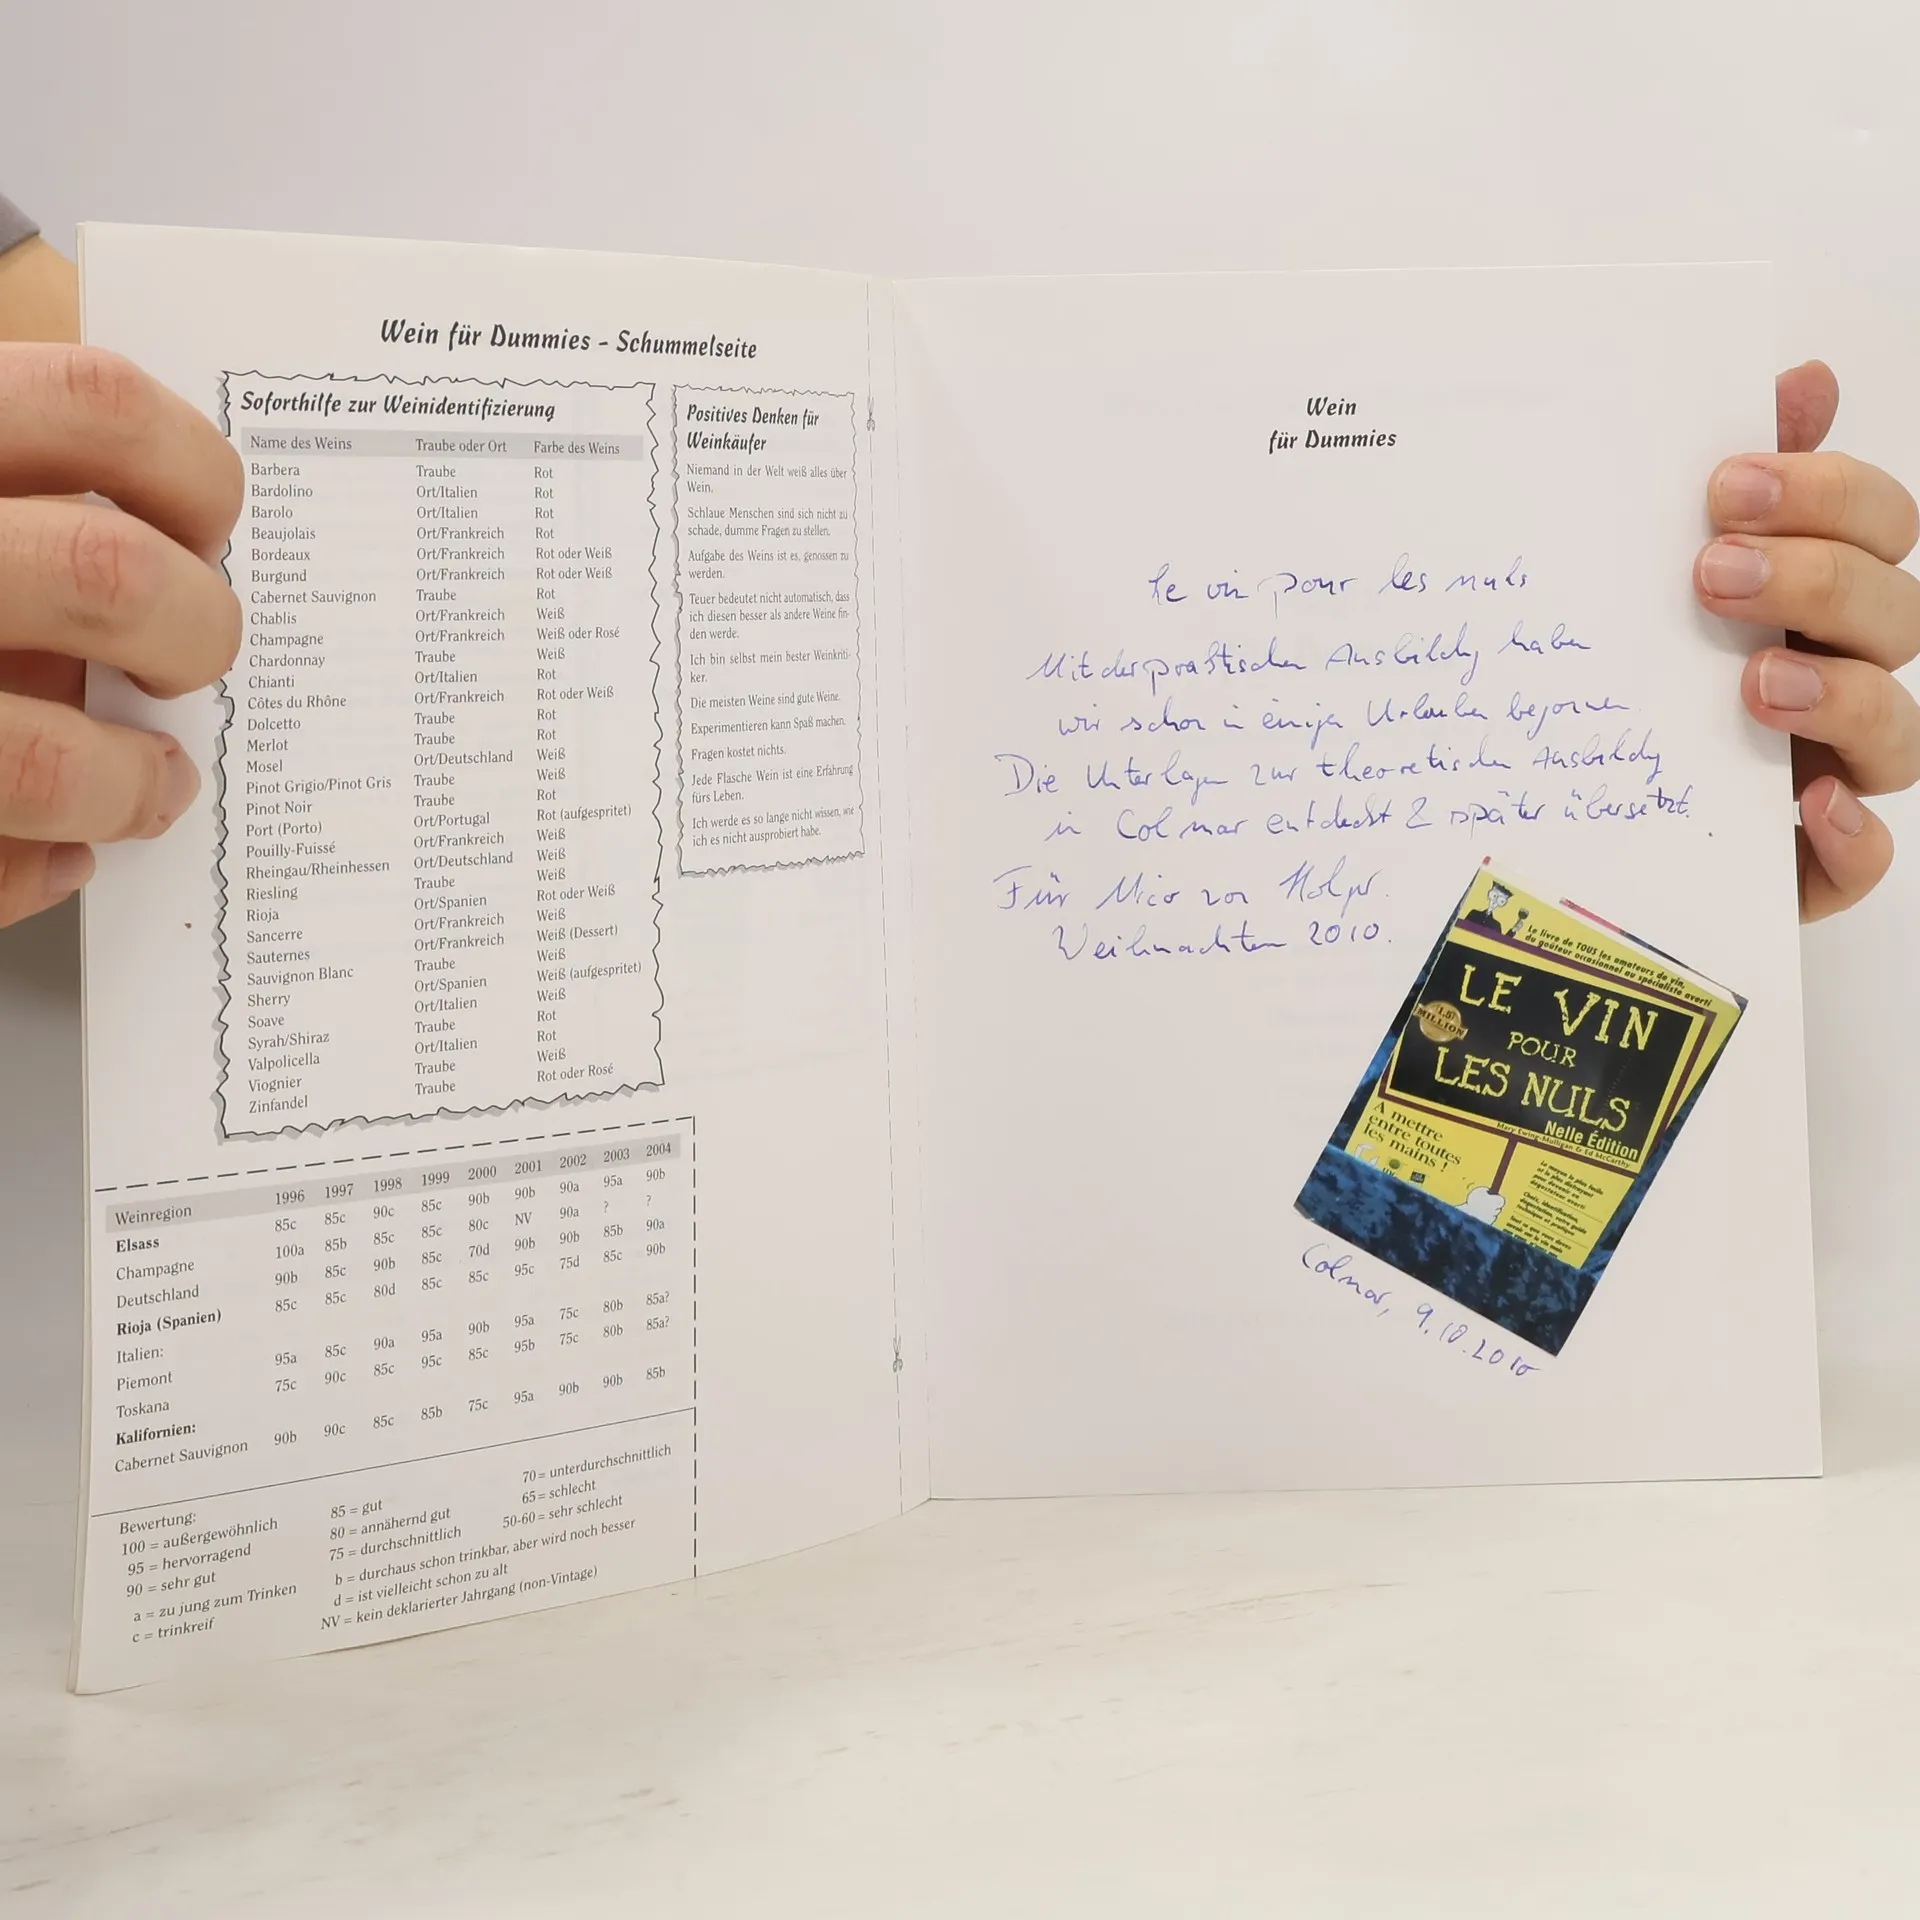 Wein für Dummies – Schummelseite
Soforthilfe zur Weinidentifizierung
Name des Weins Traube oder Ort Farbe des Weins
Barbera Traube Rot
Bardolino Ort/Italien Rot
Barolo Ort/Italien Rot
Beaujolais Ort/Frankreich Rot
Bordeaux Ort/Frankreich Rot oder Weiß
Burgund Ort/Frankreich Rot oder Weiß
Cabernet Sauvignon Traube Rot
Chablis Ort/Frankreich Weiß
Champagne Ort/Frankreich Weiß oder Rosé
Chardonnay Traube Weiß
Chianti Ort/Italien Rot
Côtes du Rhône Ort/Frankreich Rot oder Weiß
Dolcetto Traube Rot
Merlot Traube Rot
Mosel Ort/Deutschland Weiß
Pinot Grigio/Pinot Gris Traube Weiß
Pinot Noir Traube Rot
Port (Porto) Ort/Portugal Rot (aufgespritet)
Pouilly-Fuissé Ort/Frankreich Weiß
Rheingau/Rheinhessen Ort/Deutschland Weiß
Riesling Traube Weiß
Rioja Ort/Spanien Rot oder Weiß
Sancerre Ort/Frankreich Weiß
Sauternes Ort/Frankreich Weiß (Dessert)
Sauvignon Blanc Traube Weiß
Sherry Ort/Spanien Weiß (aufgespritet)
Soave Ort/Italien Weiß
Syrah/Shiraz Traube Rot
Valpolicella Ort/Italien Rot
Viognier Traube Weiß
Zinfandel Traube Rot oder Rosé
Positives Denken für
Weinkäufer
Niemand in der Welt weiß alles über
Wein.
Schlaue Menschen sind sich nicht zu
schade, dumme Fragen zu stellen.
Aufgabe des Weins ist es, genossen zu
werden.
Teuer bedeutet nicht automatisch, dass
ich diesen besser als andere Weine fin-
den werde.
Ich bin selbst mein bester Weinkriti-
ker.
Die meisten Weine sind gute Weine.
Experimentieren kann Spaß machen.
Fragen kostet nichts.
Jede Flasche Wein ist eine Erfahrung
fürs Leben.
Ich werde es so lange nicht wissen, wie
ich es nicht ausprobiert habe.
Weinregion 1996 1997 1998 1999 2000 2001 2002 2003 2004
Elsass 85c 85c 90c 85c 90b 90b 90a 95a 90b
Champagne 100a 85b 85c 85c 80c NV 90a ? ?
Deutschland 90b 85c 90b 85c 70d 90b 90b 85b 90a
Rioja (Spanien) 85c 85c 80d 85c 85c 95c 75d 85c 90b
Italien:
Piemont 95a 85c 90a 95a 90b 95a 75c 80b 85a?
Toskana 75c 90c 85c 95c 85c 95b 75c 80b 85a?
Kalifornien:
Cabernet Sauvignon 90b 90c 85c 85b 75c 95a 90b 90b 85b
Bewertung:
100 = außergewöhnlich 85 = gut 70 = unterdurchschnittlich
95 = hervorragend 80 = annähernd gut 65 = schlecht
90 = sehr gut 75 = durchschnittlich 50-60 = sehr schlecht
a = zu jung zum Trinken b = durchaus schon trinkbar, aber wird noch besser
c = trinkreif d = ist vielleicht schon zu alt
NV = kein deklarierter Jahrgang (non-Vintage)
Wein
für Dummies
Le vin pour les nuls
Mit der praktischen Ausbildung haben
wir schon in einigen Urlauben begonnen.
Die Unterlagen zur theoretischen Ausbildung
in Colmar entdeckt & später übersetzt.
Für Nico von Holger.
Weihnachten 2010.
Le livre de TOUS les amateurs de vin,
du goûteur occasionnel au spécialiste averti
1.5
MILLION
LE VIN
POUR
LES NULS
Nelle Édition
Mary Ewing-Mulligan & Ed McCarthy
A mettre
entre toutes
les mains !
Colmar, 9.10.2010